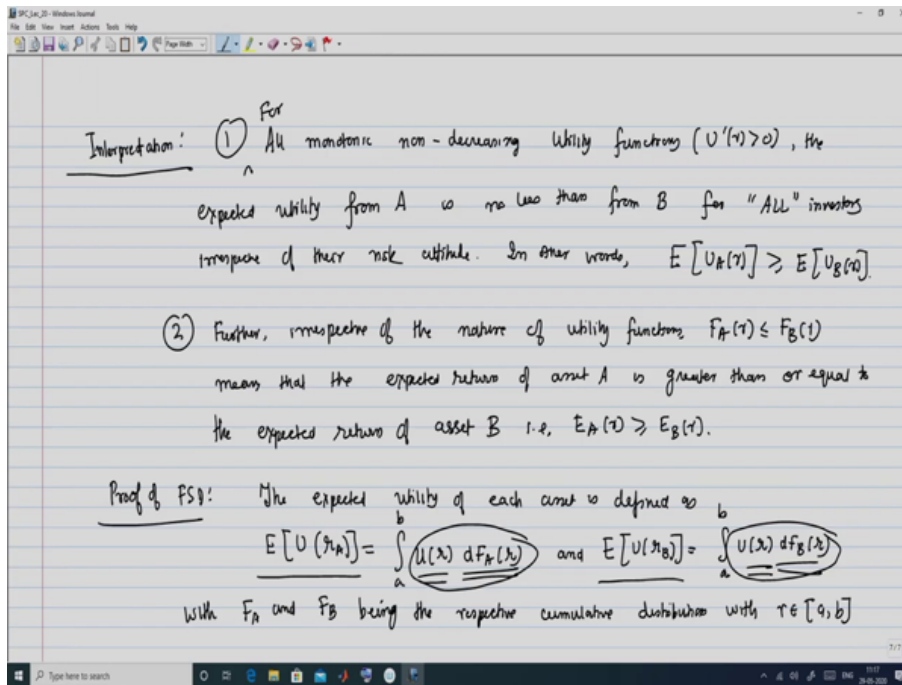 SPC_Lec_20 - Windows Journal
File Edit View Insert Actions Tools Help
Page Width
For
Interpretation : ① ^ All monotonic non-decreasing utility functions (U'(r)>0), the
expected utility from A is no less than from B for "ALL" investors
irrespective of their risk attitude. In other words, E[U_A(r)] ≥ E[U_B(r)].
② Further, irrespective of the nature of utility functions, F_A(r) ≤ F_B(r)
means that the expected return of asset A is greater than or equal to
the expected return of asset B i.e, E_A(r) ≥ E_B(r).
Proof of FSD: The expected utility of each asset is defined as
E[U(r_A)] = ∫_a^b U(r) dF_A(r) and E[U(r_B)] = ∫_a^b U(r) dF_B(r)
with F_A and F_B being the respective cumulative distribution with r ∈ [a,b]
7/7
Type here to search
ENG
11:17
29-05-2020